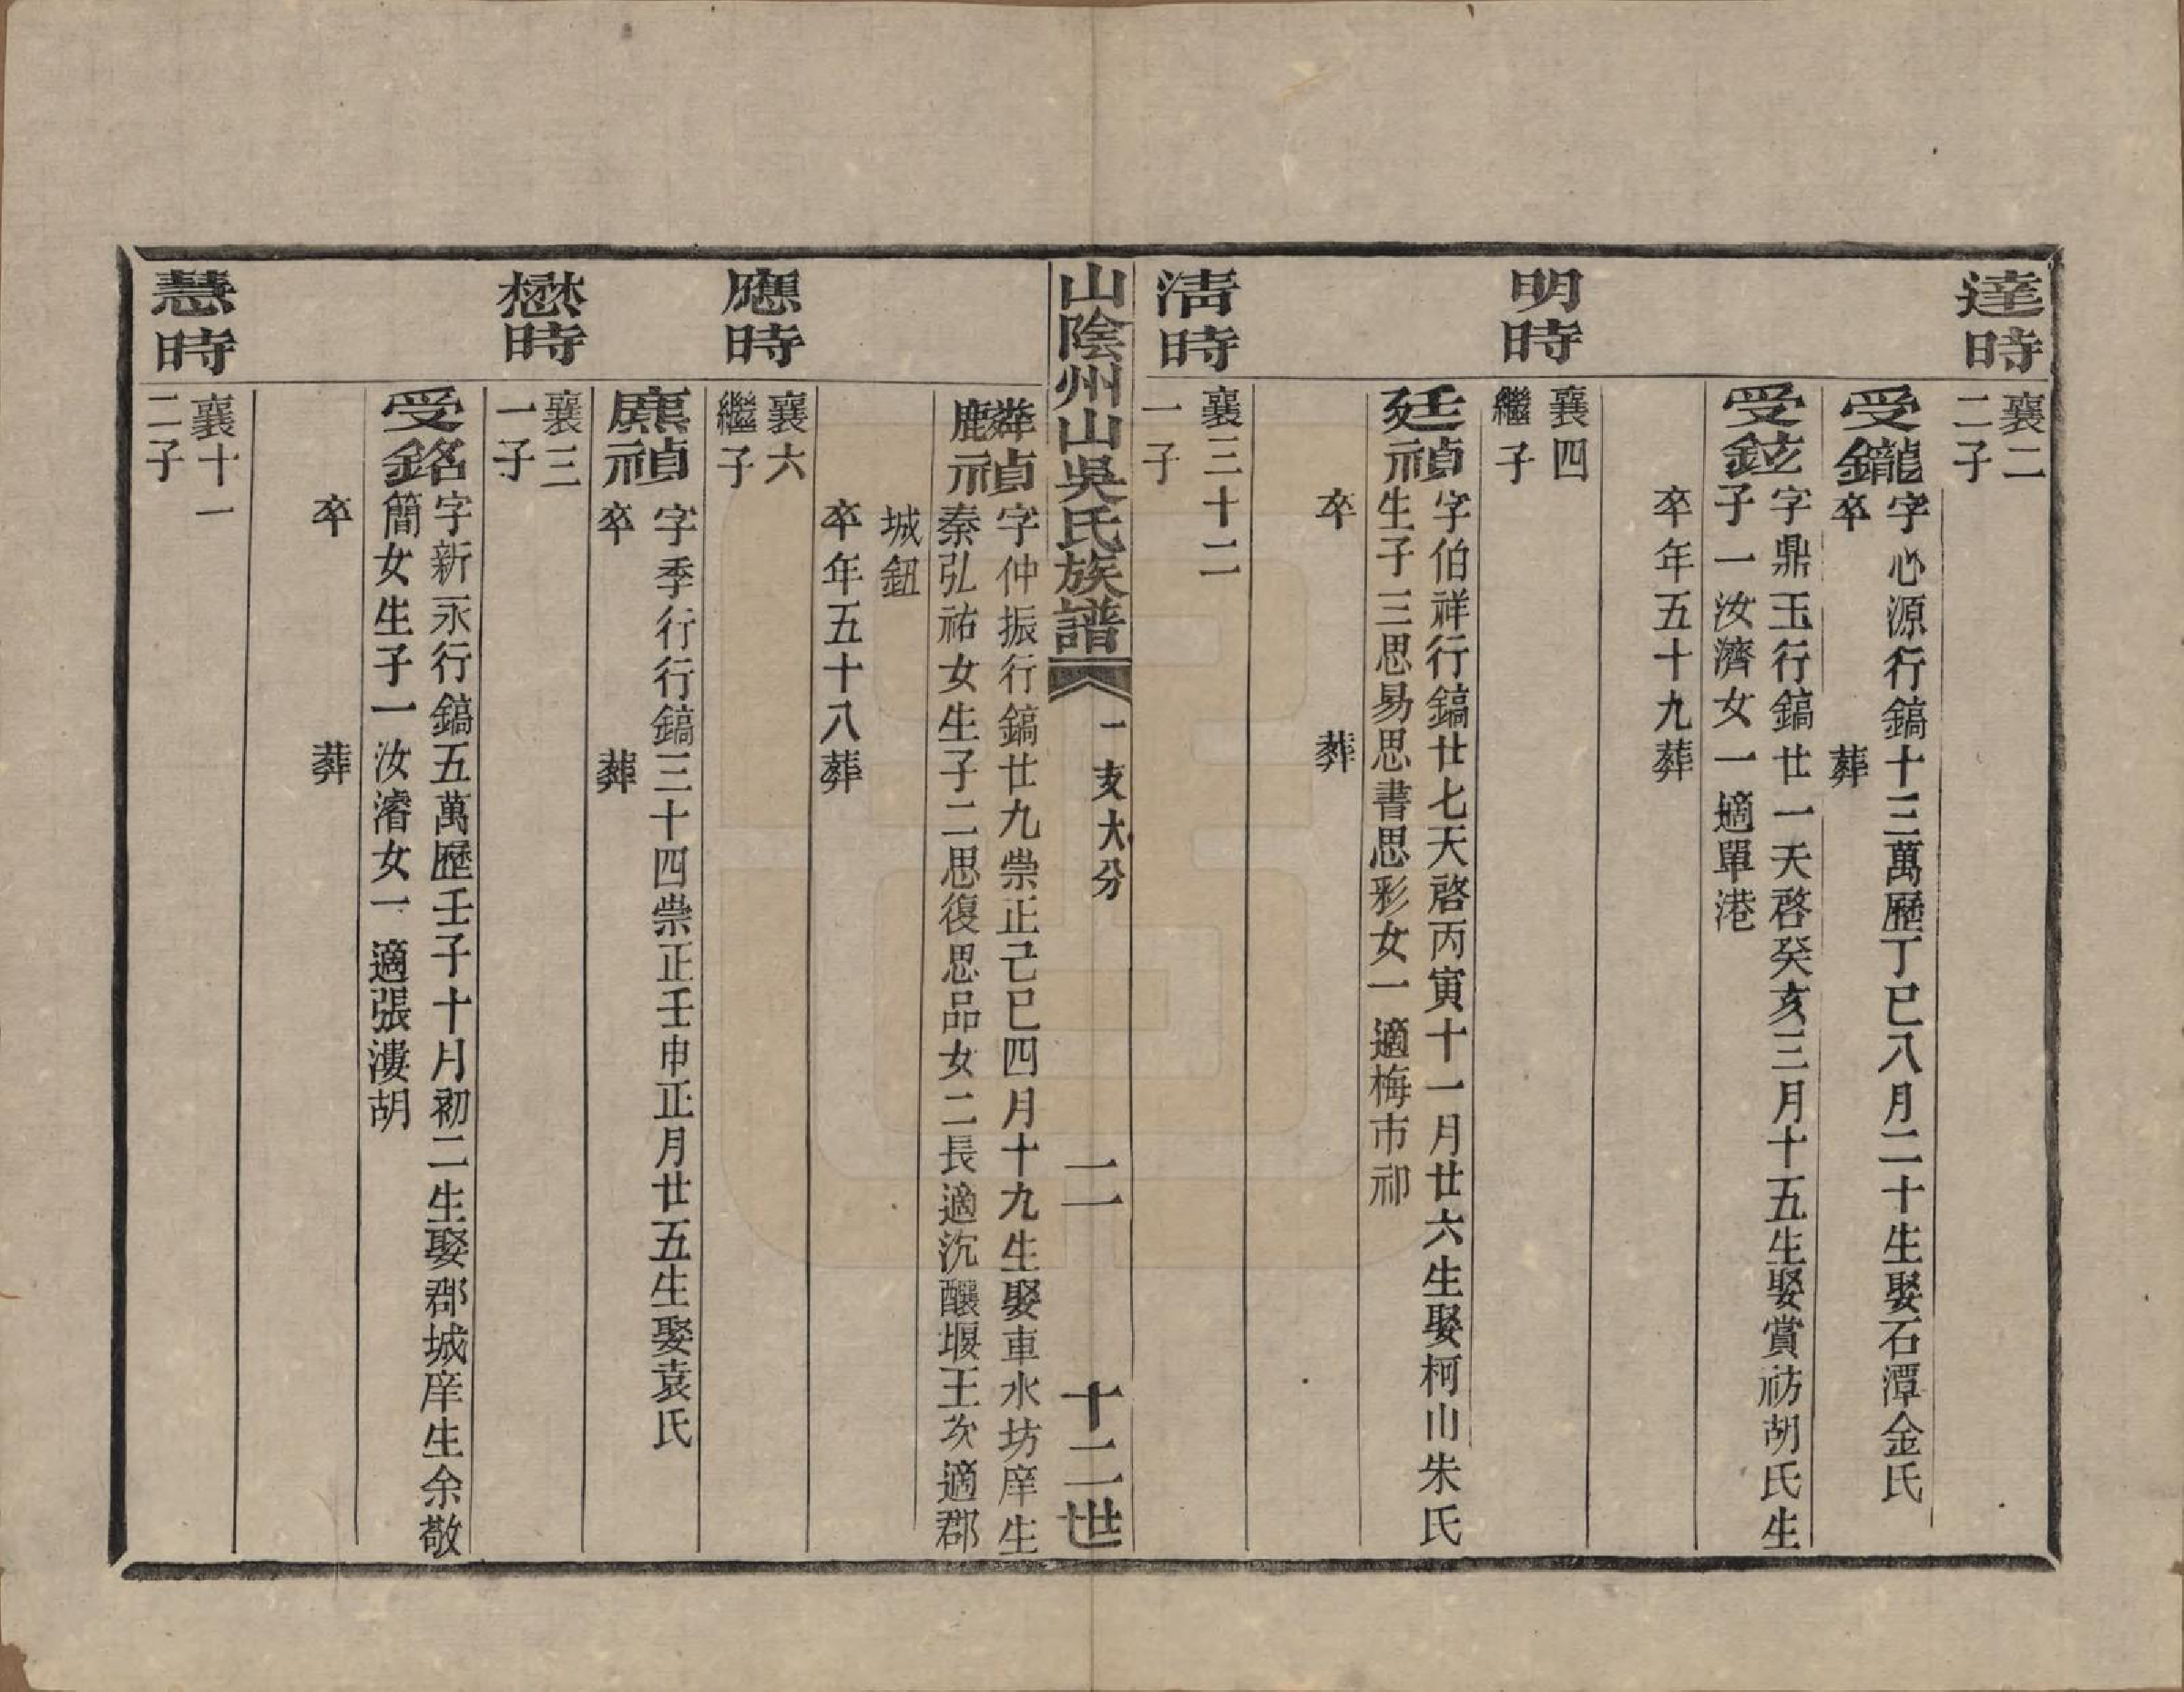 達時
襄二
二子
受鑨
字心源行鎬十三萬歷丁巳八月二十生娶石潭金氏
卒　葬
受鉉
字鼎玉行鎬廿一天啓癸亥三月十五生娶賞祊胡氏生
子一汝濟女一適單港
卒年五十九葬
明時
襄四
繼子
廷禎
字伯祥行鎬廿七天啓丙寅十一月廿六生娶柯山朱氏
生子三思易思書思彩女一適梅市祁
卒　葬
淸時
襄三十二
一子
山陰州山吳氏族譜
一支大分
二
十二世
麟禎
字仲振行鎬廿九崇正己巳四月十九生娶車水坊庠生
秦弘祐女生子二思復思品女二長適沉釀堰王次適郡
城鈕
卒年五十八葬
應時
襄六
繼子
廌禎
字季行行鎬三十四崇正壬申正月廿五生娶袁氏
卒　葬
懋時
襄三
一子
受銘
字新永行鎬五萬歷壬子十月初二生娶郡城庠生余敬
簡女生子一汝濬女一適張漊胡
卒　葬
慧時
襄十一
二子